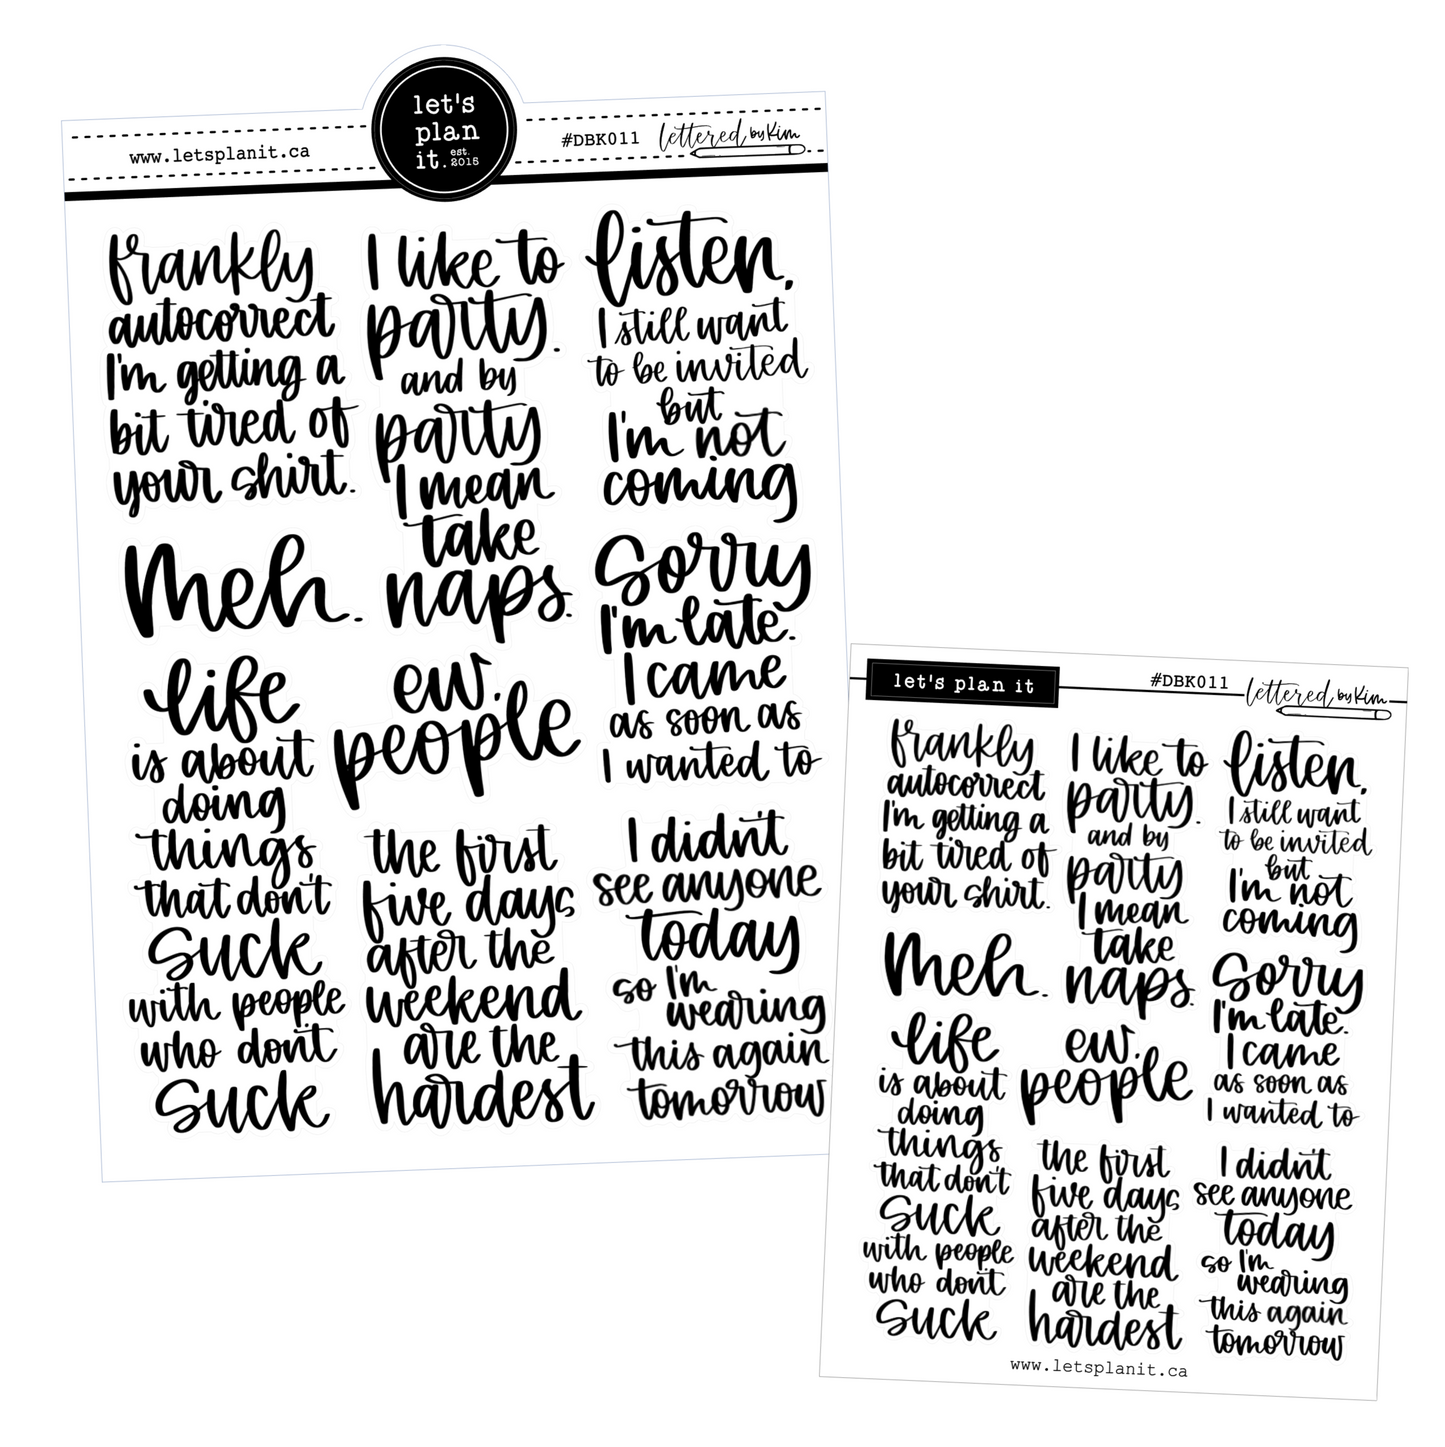 www.letsplanit.ca
let's
plan
it. est. 2015
#DBK011
lettered by Kim
frankly
autocorrect
I'm getting a
bit tired of
your shirt.
Meh.
life
is about
doing
things
that don't
suck
with people
who don't
suck
I like to
party.
and by
party
I mean
take
naps.
ew.
people
the first
five days
after the
weekend
are the
hardest
listen,
I still want
to be invited
but
I'm not
coming
Sorry
I'm late.
I came
as soon as
I wanted to
I didn't
see anyone
today
so I'm
wearing
this again
tomorrow
let's plan it
#DBK011
lettered by Kim
frankly
autocorrect
I'm getting a
bit tired of
your shirt.
Meh.
life
is about
doing
things
that don't
suck
with people
who don't
suck
I like to
party.
and by
party
I mean
take
naps.
ew.
people
the first
five days
after the
weekend
are the
hardest
listen,
I still want
to be invited
but
I'm not
coming
Sorry
I'm late.
I came
as soon as
I wanted to
I didn't
see anyone
today
so I'm
wearing
this again
tomorrow
www.letsplanit.ca